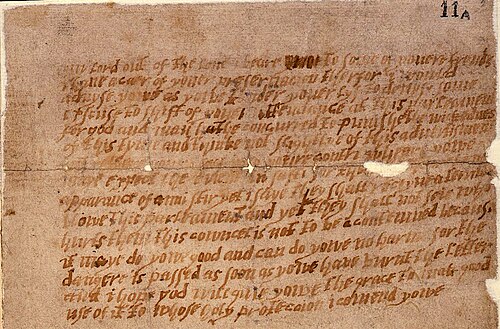 my lord out of the love i beare to some of youere frends
i have a caer of youer preseruacion therfor i would
aduyse yowe as yowe tender youer lyf to deuyse some
excuse to shift of youer attendance at this parleament
for god and man hathe concurred to punishe the wickednes
of this tyme and thinke not slightlye of this aduertisment
youre contri wheare yowe
maye expect the event in safti for
apparance of anni stir yet i saye they shall receyue a terrible
blowe this parleament and yet they shall not seie who
hurts them this cowncel is not to be contemned because
it maye do yowe good and can do yowe no harme for the
dangere is passed as soon as yowe have burnt the letter
and i hope god will give yowe the grace to mak good
use of it to whose holy proteccion i comend yowe
11A